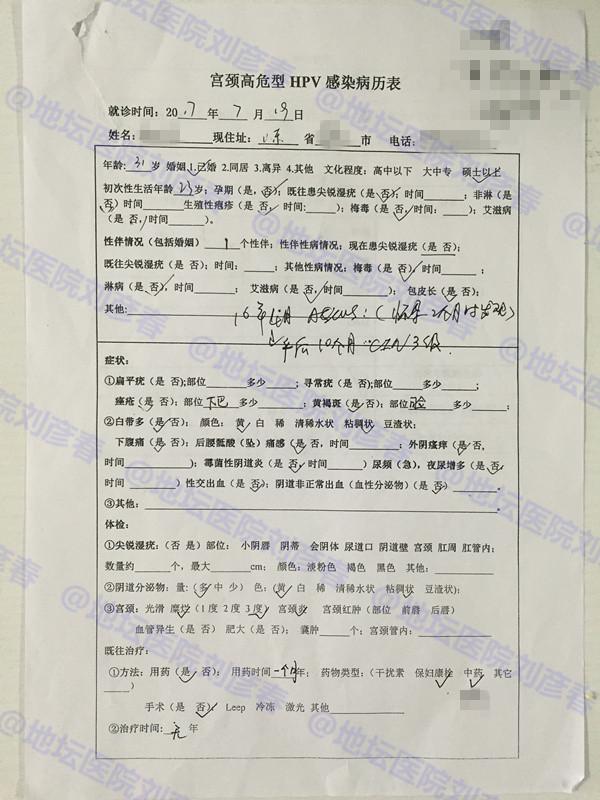 宫颈高危型 HPV 感染病历表
就诊时间：2017 年 7 月 19 日
姓名： 现住址： 山东 省 市 电话：
年龄：31 岁 婚姻 1.已婚 2.同居 3.离异 4.其他 文化程度：高中以下 大中专 硕士以上
初次性生活年龄 23 岁；孕期（是，否）；既往患尖锐湿疣（是 否）时间 ；非淋（是
否）时间 生殖性疱疹（是 否，时间： ）；梅毒（是 否，时间： ）；艾滋病
（是 否，时间 ）。
性伴情况（包括婚姻） 1 个性伴；性伴性病情况：现在患尖锐湿疣（是 否）；
既往尖锐湿疣（是 否）；时间： ；其他性病情况：梅毒（是 否），时间 ；
淋病（是 否），时间 ； 艾滋病（是 否，时间 ）； 包皮长（是 否）；
其他： 16年 月 ASCUS：（怀孕2个月时发现）
产后10个月：CIN3级．
症状：
①扁平疣（是 否）；部位 多少 ；寻常疣（是 否）；部位 多少 ；
痤疮（是 否）；部位 下巴 多少 ；黄褐斑（是 否）；部位 脸 多少 ；
②白带多（是 否）； 颜色： 黄 白 稀 清稀水状 粘稠状 豆渣状；
下腹痛（是 否）；后腰骶酸（坠）痛感（是 否，时间 ）；外阴瘙痒（是 否，
时间 ）；霉菌性阴道炎（是 否，时间 ）尿频（急），夜尿增多（是 否，
时间 ）性交出血（是 否）；阴道非正常出血（血性分泌物）（是 否） 。
③其他： 。
体检：
①尖锐湿疣：（否 是）部位： 小阴唇 阴蒂 会阴体 尿道口 阴道壁 宫颈 肛周 肛管内；
数量约 个，最大 cm； 颜色：淡粉色 褐色 黑色 其他：
②阴道分泌物：量：（多 中 少） 色：（黄 白 稀 清稀水状 粘稠状 豆渣状）；
③宫颈：光滑 糜烂（1度 2度 3度）宫颈炎 宫颈红肿（部位 前唇 后唇）
血管异生（是 否） 肥大（是 否）； 囊肿 个；宫颈管内：
既往治疗：
①方法：用药（是 否）； 用药时间 一个月 年； 药物类型：（干扰素 保妇康栓 中药 其它
）
手术（是 否） Leep 冷冻 激光 其他
②治疗时间： 无 年
@地坛医院刘彦春